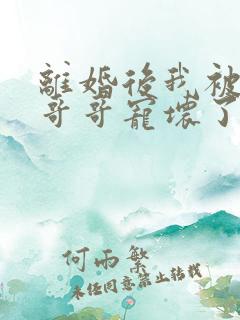 離婚後我被
哥哥寵壞了
何雨繁
未任同意禁止转载